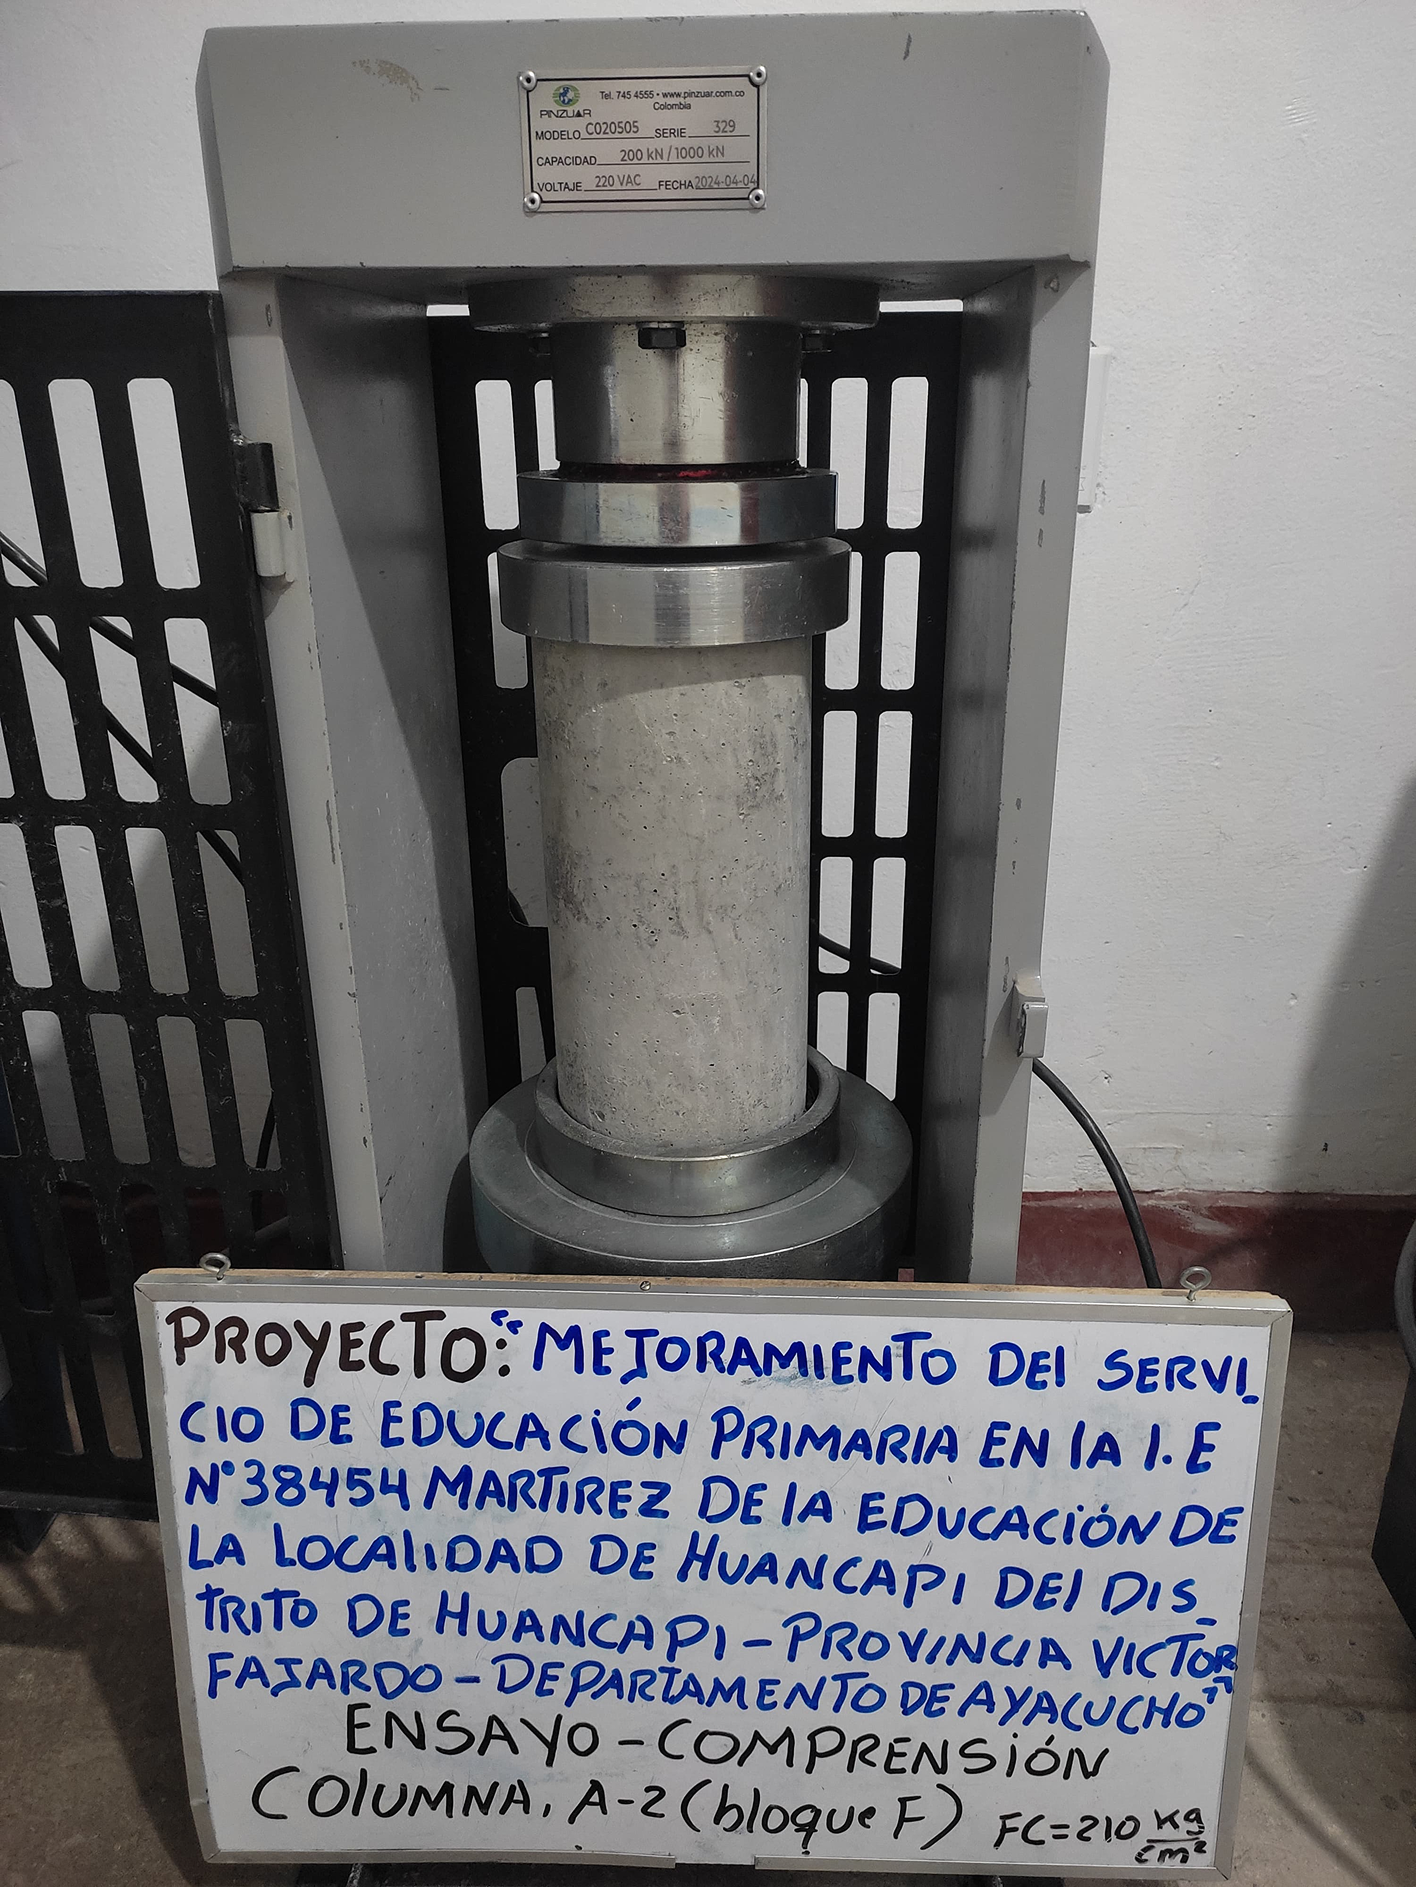 Tel. 745 4555 • www.pinzuar.com.co
Colombia
PINZUAR
MODELO C020505 SERIE 329
CAPACIDAD 200 kN / 1000 kN
VOLTAJE 220 VAC FECHA 2024-04-04
PROYECTO: "MEJORAMIENTO DEl SERVI_
CIO DE EDUCACiÓN PRIMARIA EN lA I.E
N°38454 MARTIREZ DE lA EDUCACiÓN DE
LA LOCAliDAD DE HUANCAPI DEl DIS_
TRITO DE HUANCAPI - PROVINCIA VICTOR
FAJARDO - DEPARTAMENTO DE AYACUCHO"
ENSAYO - COMPRENSiÓN
COlUMNA. A-2 (bloque F) FC=210 kg/cm²